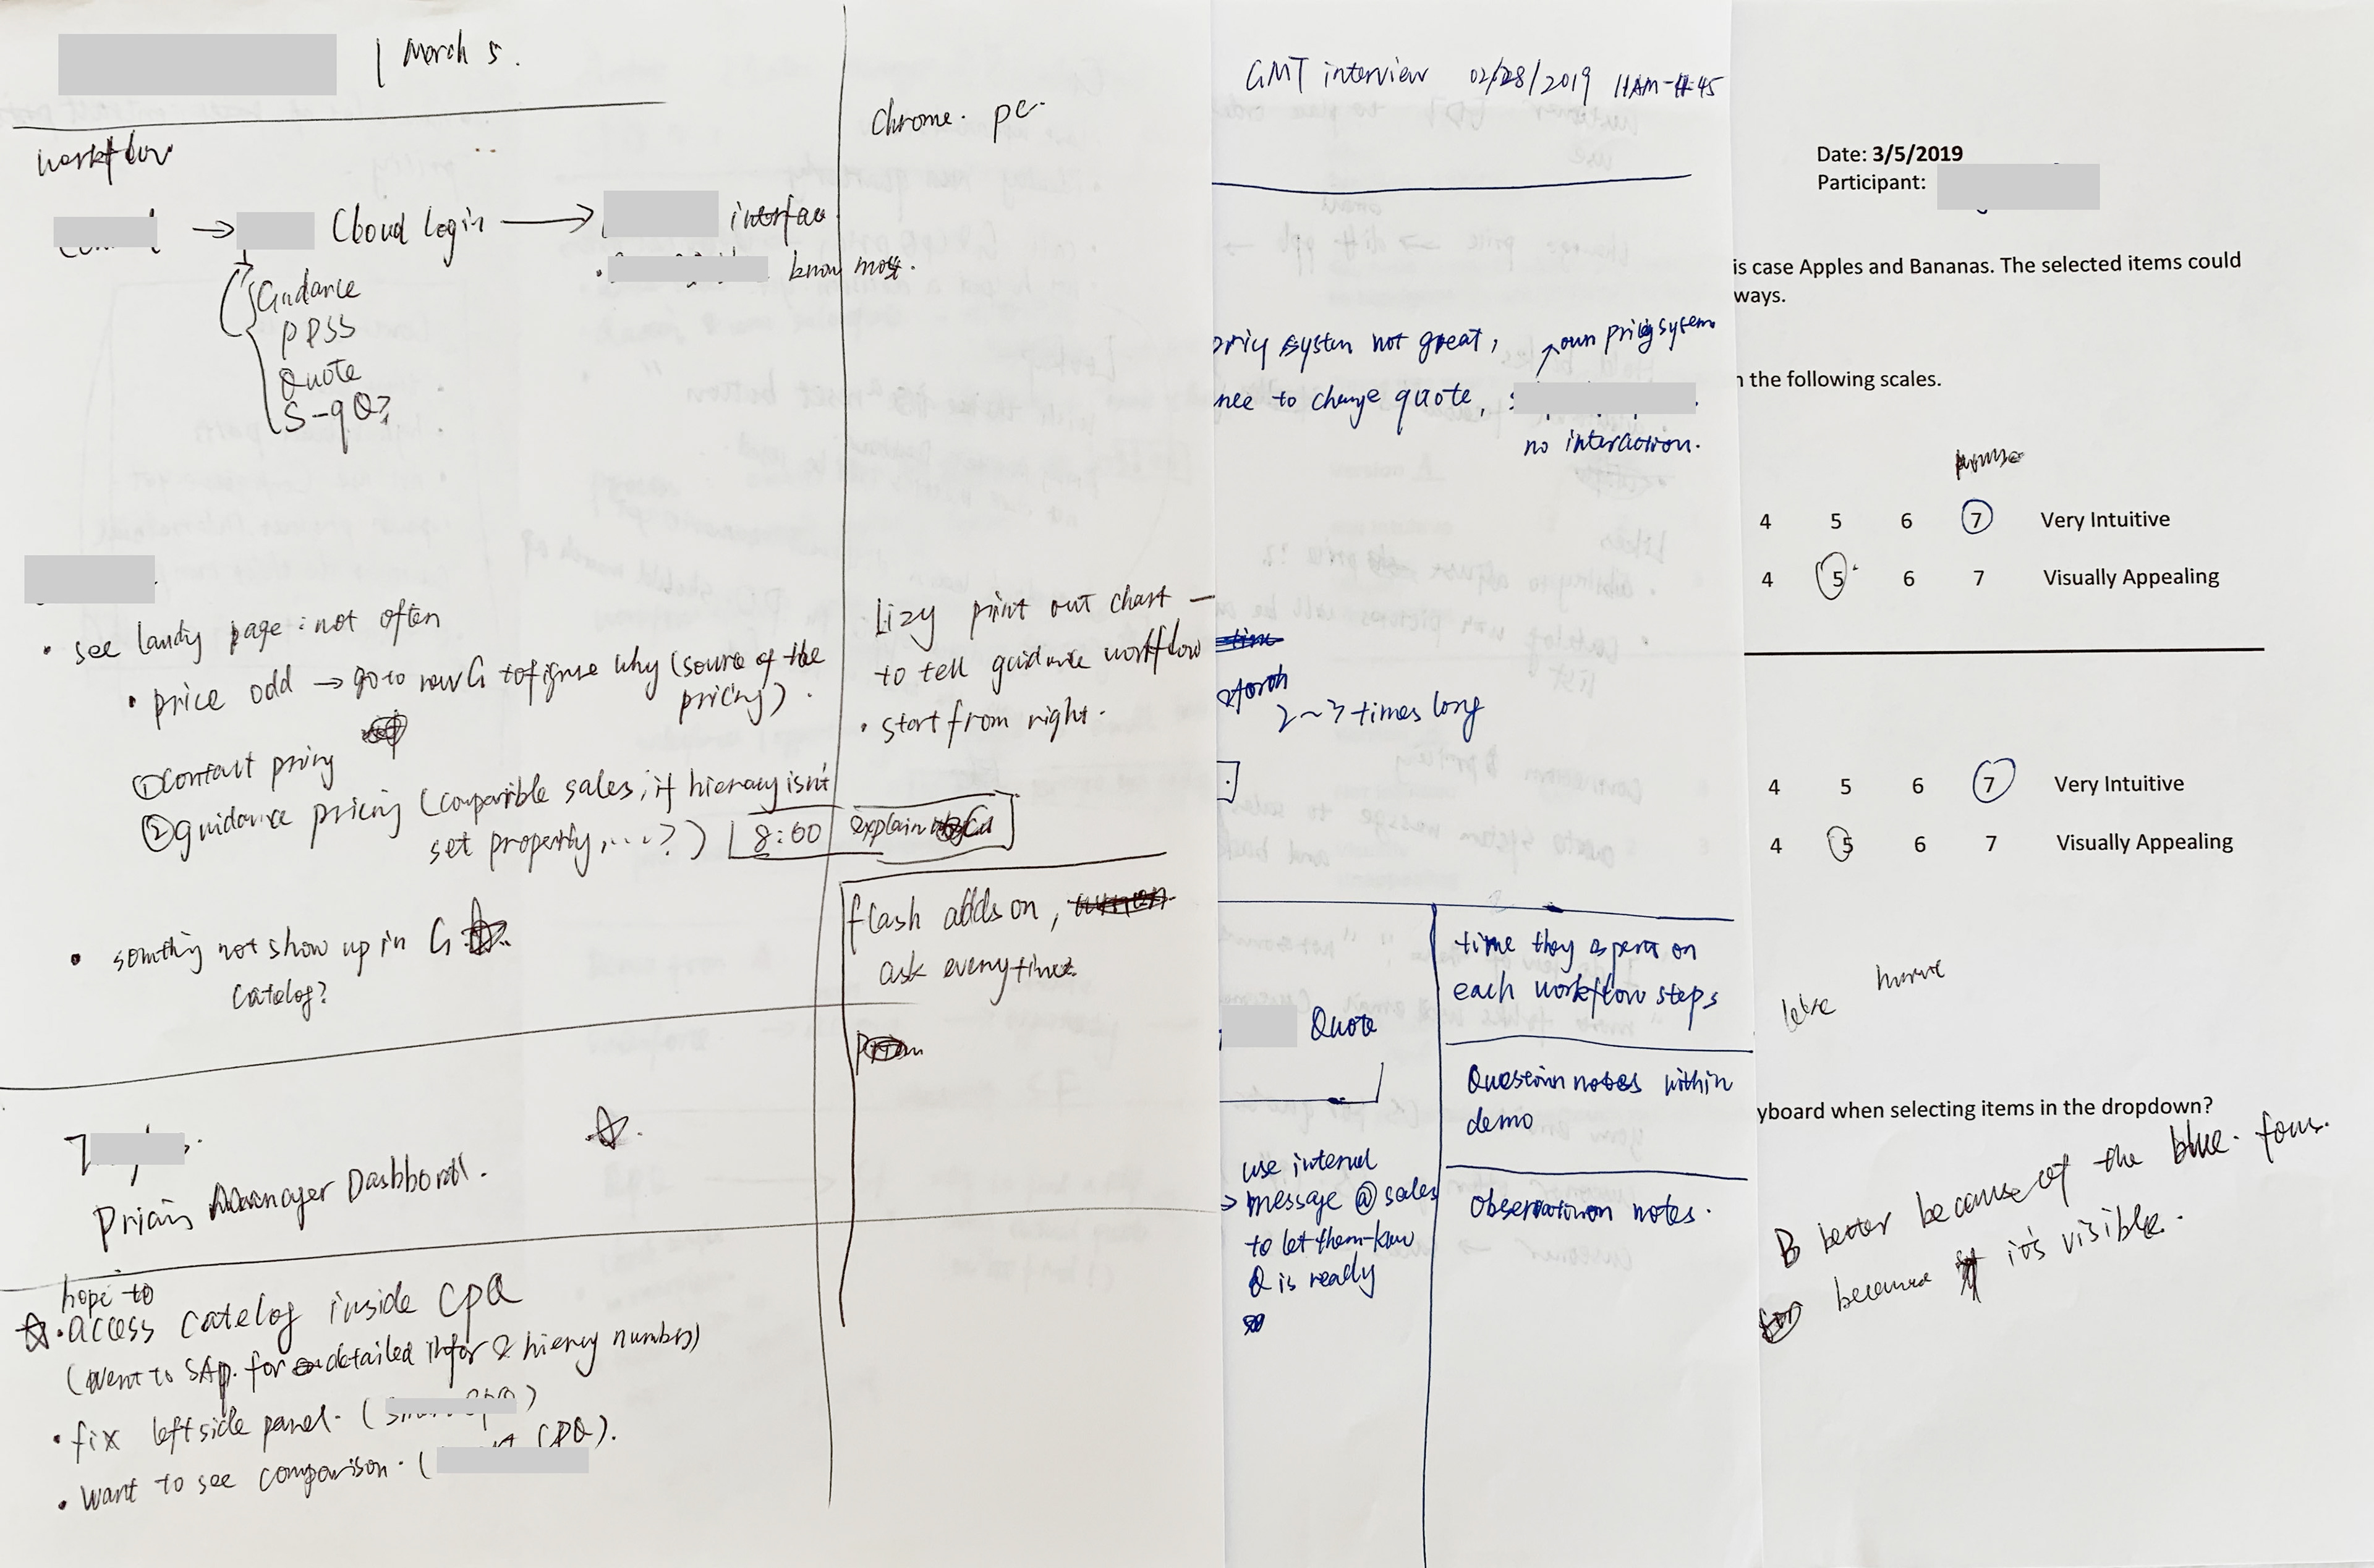 March 5.
workflow
Cloud login → interface
know most.
Guidance
PPSS
Quote
S-qQ?
• see landy page : not often
• price odd → go to new G to figure why (source of the
pricing).
① contact pricing
② guidance pricing (comparible sales, if hierachy isn't
set property, ...?)
8:00 explain
• somthing not show up in G
Catelog?
Pricing Mannager Dashbord.
hope to
• access catelog inside CPQ
(went to SAP. for detailed infor & hierachy numbers)
• fix left side panel. (
• want to see comparison. ( CPQ).
Chrome. pc.
Lizy print out chart –
to tell guidance workflow
• start from right.
flash adds on,
ask everytime.
GMT interview 02/28/2019 11AM-
system not great, ↗ own pricing system
to change quote,
no interaction.
2~3 times long
Quote
use internal
→ message @ sales
to let them know
Q is ready
time they spent on
each workflow steps
Question notes within
demo
Observation notes.
Date: 3/5/2019
Participant:
is case Apples and Bananas. The selected items could
ways.
the following scales.
4 5 6 7 Very Intuitive
4 5 6 7 Visually Appealing
4 5 6 7 Very Intuitive
4 5 6 7 Visually Appealing
yboard when selecting items in the dropdown?
B better because of the blue. fous.
because it's visible.